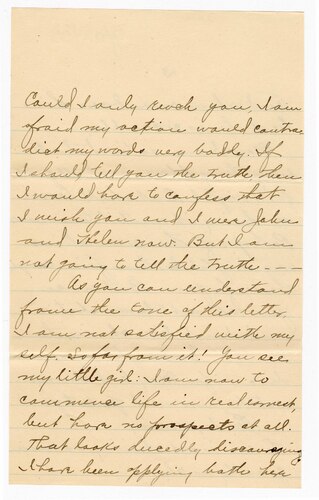 Could I only reach you, I am
fraid my action would contra-
dict my words very badly. If
I should tell you the truth then
I would have to confess that
I wish you and I were John
and Helen now. But I am
not going to tell the truth. - - -
As you can understand
frome the tone of this letter.
I am not satisfied with my
self. So far from it! You see
my little girl: I am now to
commence life in real earnest,
but have no prospects at all.
That looks ducedly discouraging
I have been applying bathe here